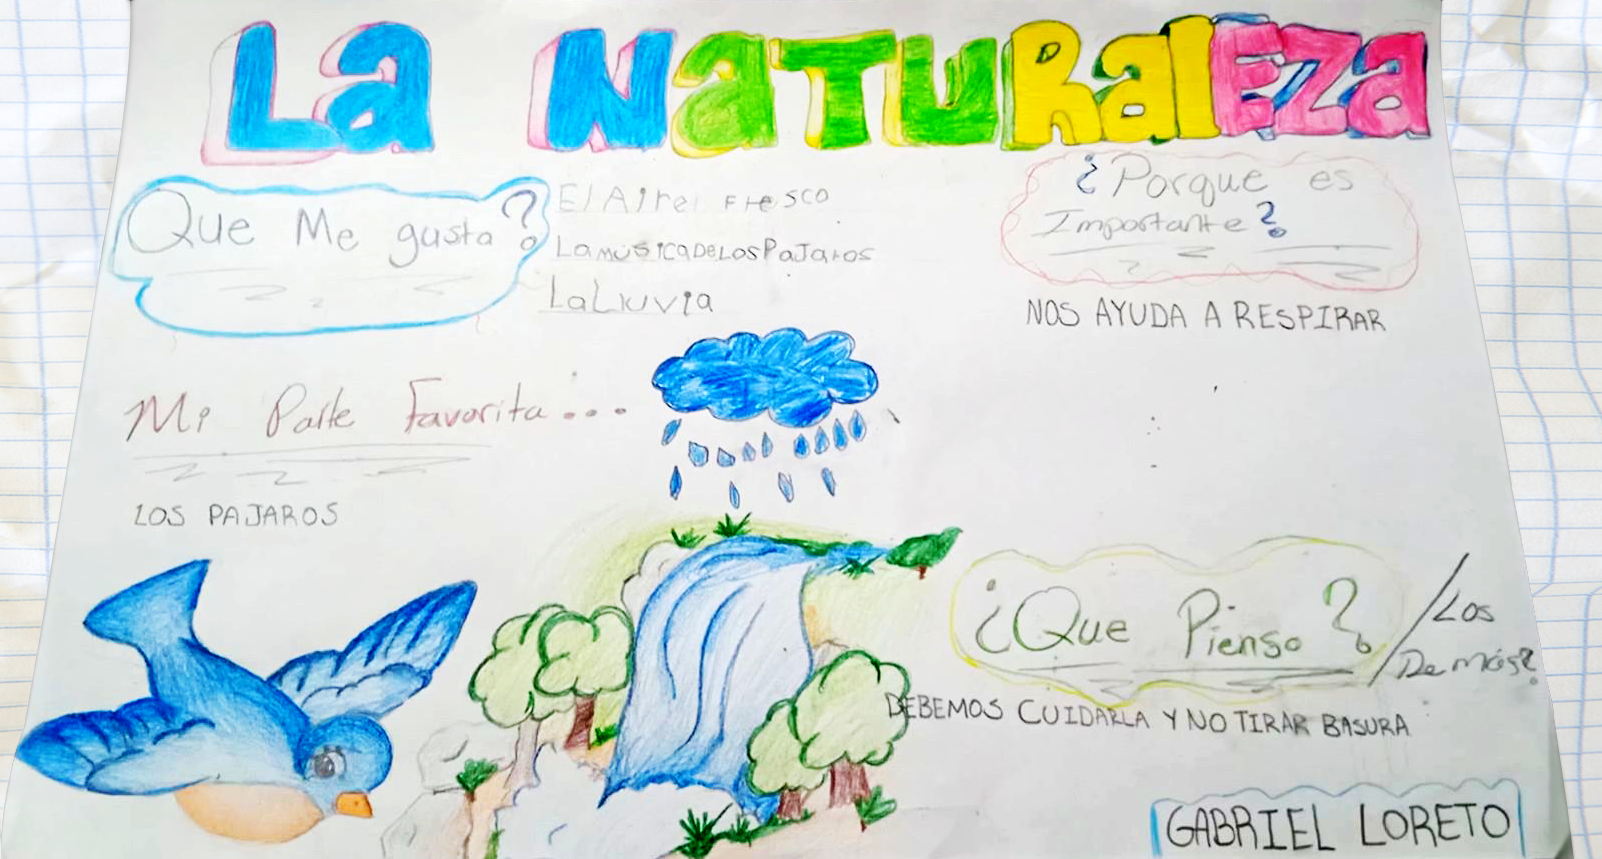 La NaTURalEZa
Que Me gusta?
El Aire Fresco
La música De Los Pajaros
La Lluvia
¿Porque es
Importante?
NOS AYUDA A RESPIRAR
Mi Parte Favorita...
LOS PAJAROS
¿Que Pienso?
/Los
De más?
DEBEMOS CUIDARLA Y NO TIRAR BASURA
GABRIEL LORETO